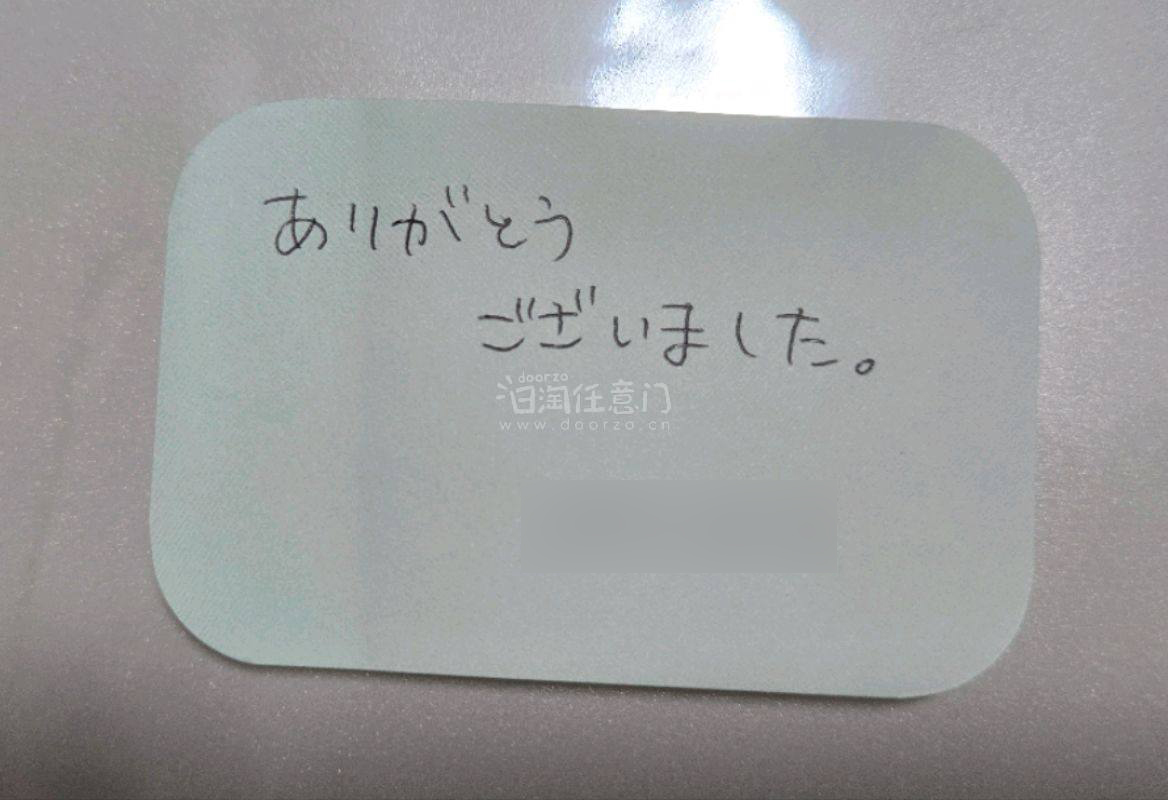 ありがとう
ございました。
doorzo
泊淘任意门
www.doorzo.cn